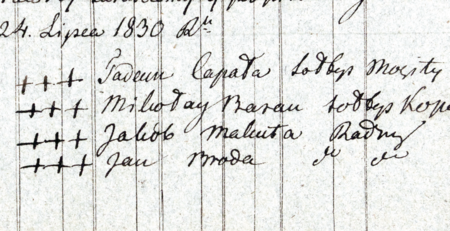 24. Lipca 1830 Ru
+++ Tadeusz Capała Sołtys Mogiły
+++ Mikołay Baran Sołtys
+++ Jakób Maluta Radny
+++ Jan Broda do do